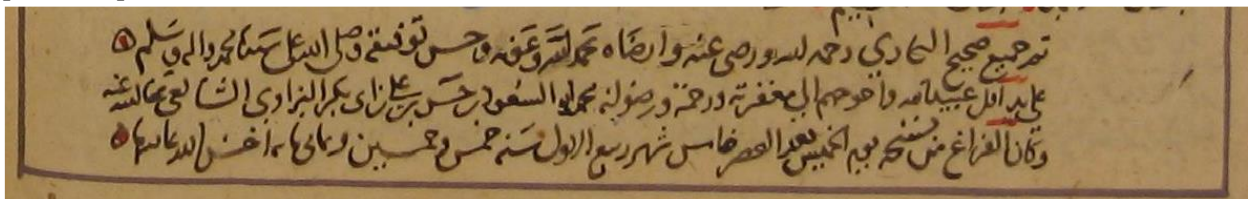 تم جميع صحيح البخاري رحمه الله ورضي عنه وارضاه بحمد الله وعونه وحسن توفيقه وصلى الله على سيدنا محمد واله وسلم
على يد اقل عبيد الله واحوجهم الى مغفرته ورحمته ورضوانه محمد ابو السعود بن حسن بن علي بن ابي بكر البزاوي الشافعي عفا الله عنه
وكان الفراغ من نسخه يوم الخميس بعد العصر خامس شهر ربيع الاول سنة خمس وخمسين وثماني ماية احسن الله